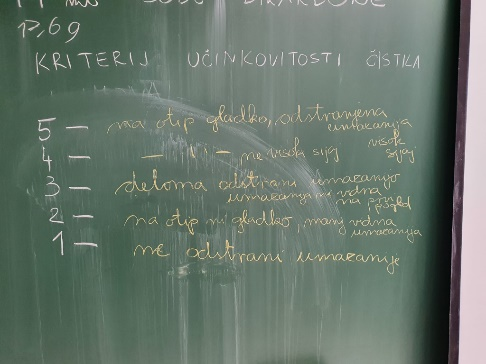 SODE BIKARBONE
17,6 g
KRITERIJ UČINKOVITOSTI ČISTILA
5 – na otip gladko, odstranjena
umazanija
visok sijaj
4 – – 11 – ne visok sijaj
3 – deloma odstrani umazanijo
umazanija ni vidna
na prvi pogled
2 – na otip ni gladko, manj vidna
umazanija
1 – ne odstrani umazanije